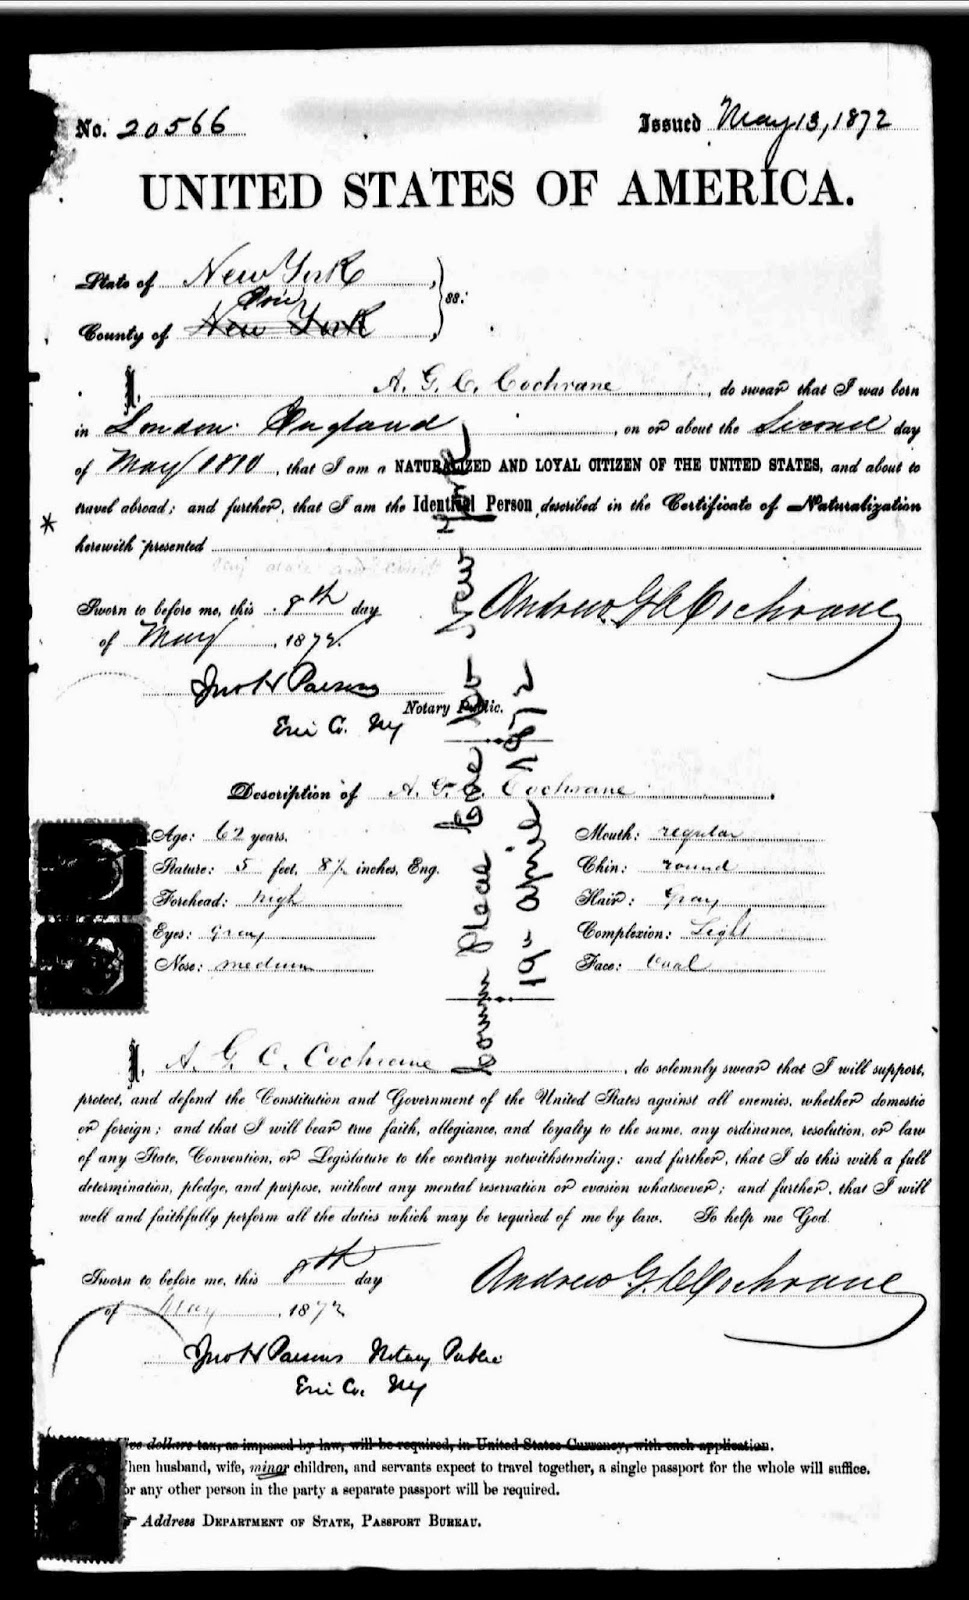 No. 20566 Issued May 13, 1872
UNITED STATES OF AMERICA.
State of New York
Erie
County of New York } ss:
I, A. G. C. Cochrane, do swear that I was born
in London England, on or about the Second day
of May 1810, that I am a NATURALIZED AND LOYAL CITIZEN OF THE UNITED STATES, and about to
travel abroad; and further, that I am the Identical Person described in the Certificate of Naturalization
herewith presented
Sworn to before me, this 8th day
of May, 1872.
Andrew G. C. Cochrane
Jno H Parsons
Notary Public.
Erie Co. NY
Description of A. G. C. Cochrane
Age: 62 years. Mouth: regular
Stature: 5 feet, 8½ inches, Eng. Chin: round
Forehead: high Hair: Gray
Eyes: Gray Complexion: Light
Nose: medium Face: Oval
New York
19th April 1872
I, A. G. C. Cochrane, do solemnly swear that I will support,
protect, and defend the Constitution and Government of the United States against all enemies, whether domestic
or foreign; and that I will bear true faith, allegiance, and loyalty to the same, any ordinance, resolution, or law
of any State, Convention, or Legislature to the contrary notwithstanding; and further, that I do this with a full
determination, pledge, and purpose, without any mental reservation or evasion whatsoever; and further, that I will
well and faithfully perform all the duties which may be required of me by law. So help me God.
Sworn to before me, this 8th day
of May, 1872
Andrew G. C. Cochrane
Jno H Parsons Notary Public
Erie Co. NY
Five dollars tax, as imposed by law, will be required, in United States Currency, with each application.
hen husband, wife, minor children, and servants expect to travel together, a single passport for the whole will suffice.
or any other person in the party a separate passport will be required.
Address DEPARTMENT OF STATE, PASSPORT BUREAU.